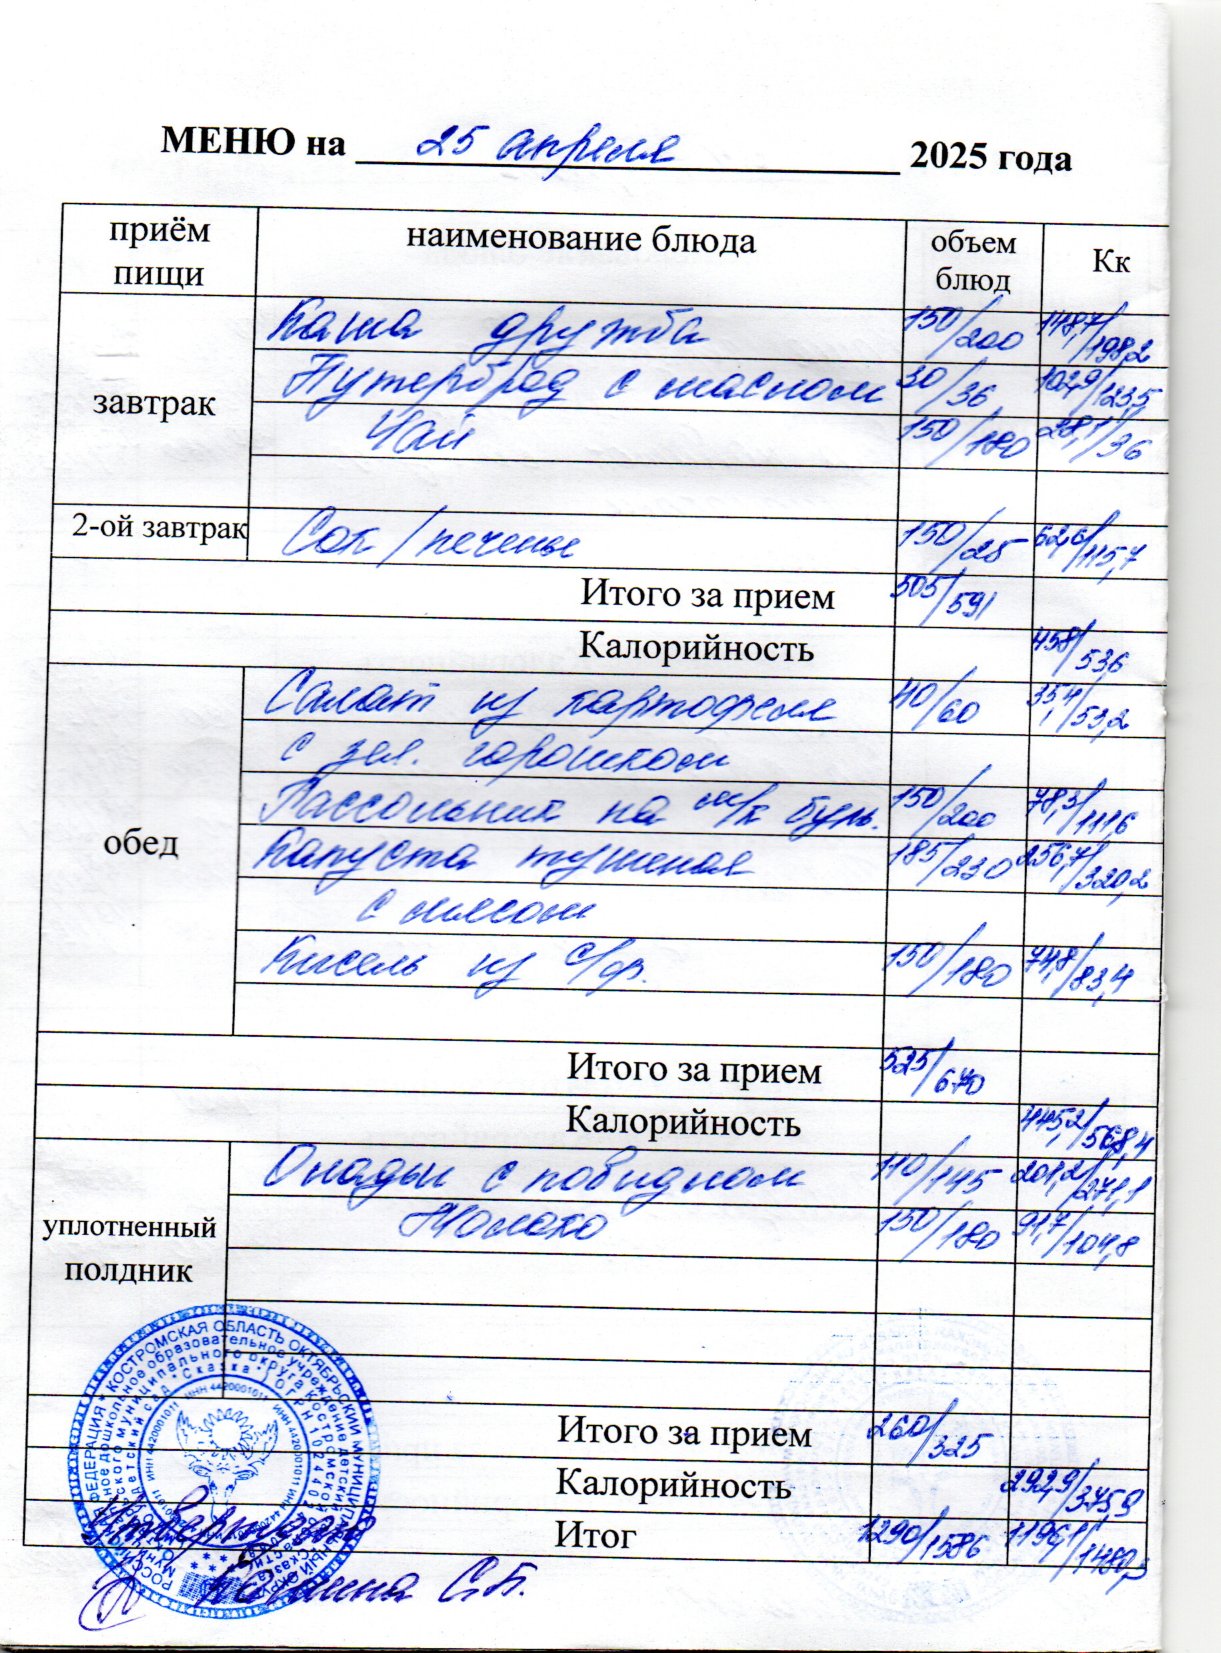 МЕНЮ на 25 апреля 2025 года
приём пищи наименование блюда объем блюд Кк
завтрак
Каша дружба 150/200 148,7/198,2
Бутерброд с маслом 30/36 102,9/123,5
Чай 150/180 28,1/36
2-ой завтрак Сок/печенье 150/25 62,6/115,7
Итого за прием 505/591
Калорийность 458/536
обед
Салат из картофеля 40/60 35,4/53,2
с зел. горошком
Рассольник на м/к буль. 150/200 78,3/111,6
Капуста тушеная 185/230 256,7/320,2
с мясом
Кисель из с/ф. 150/180 74,8/83,4
Итого за прием 525/670
Калорийность 445,2/568,4
уплотненный полдник
Оладьи с повидлом 110/145 201,2/271,1
Молоко 150/180 91,7/104,8
Итого за прием 260/325
Калорийность 292,9/375,9
Итог 1290/1586 1196,1/1480,3
РОССИЙСКАЯ ФЕДЕРАЦИЯ * КОСТРОМСКАЯ ОБЛАСТЬ ОКТЯБРЬСКИЙ МУНИЦИПАЛЬНЫЙ ОКРУГ
дошкольное образовательное учреждение детский
муниципального округа Костромской области
детский сад "Сказка"
ИНН 4420001011
Утверждаю
С.Б.